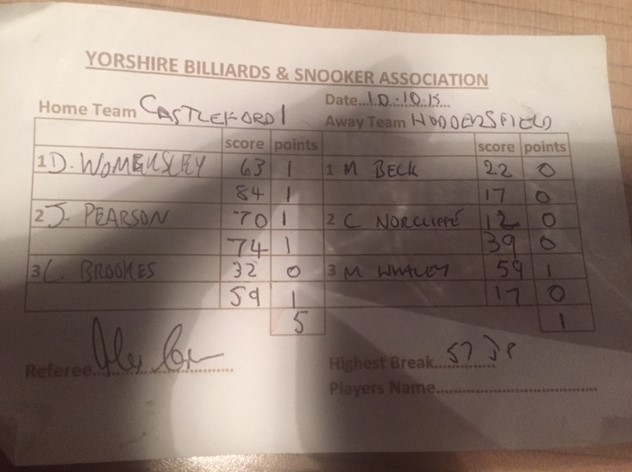 YORSHIRE BILLIARDS & SNOOKER ASSOCIATION
Home Team CASTLEFORD 1 Date...10.10.15...
Away Team HUDDERSFIELD
score points score points
1 D. WOMERSLEY 63 1 1 M BECK 22 0
84 1 17 0
2 J. PEARSON 70 1 2 C NORCLIFFE 12 0
74 1 39 0
3 C. BROOKES 32 0 3 M WHALEY 59 1
59 1 17 0
5 1
Referee Highest Break 57 JP
Players Name